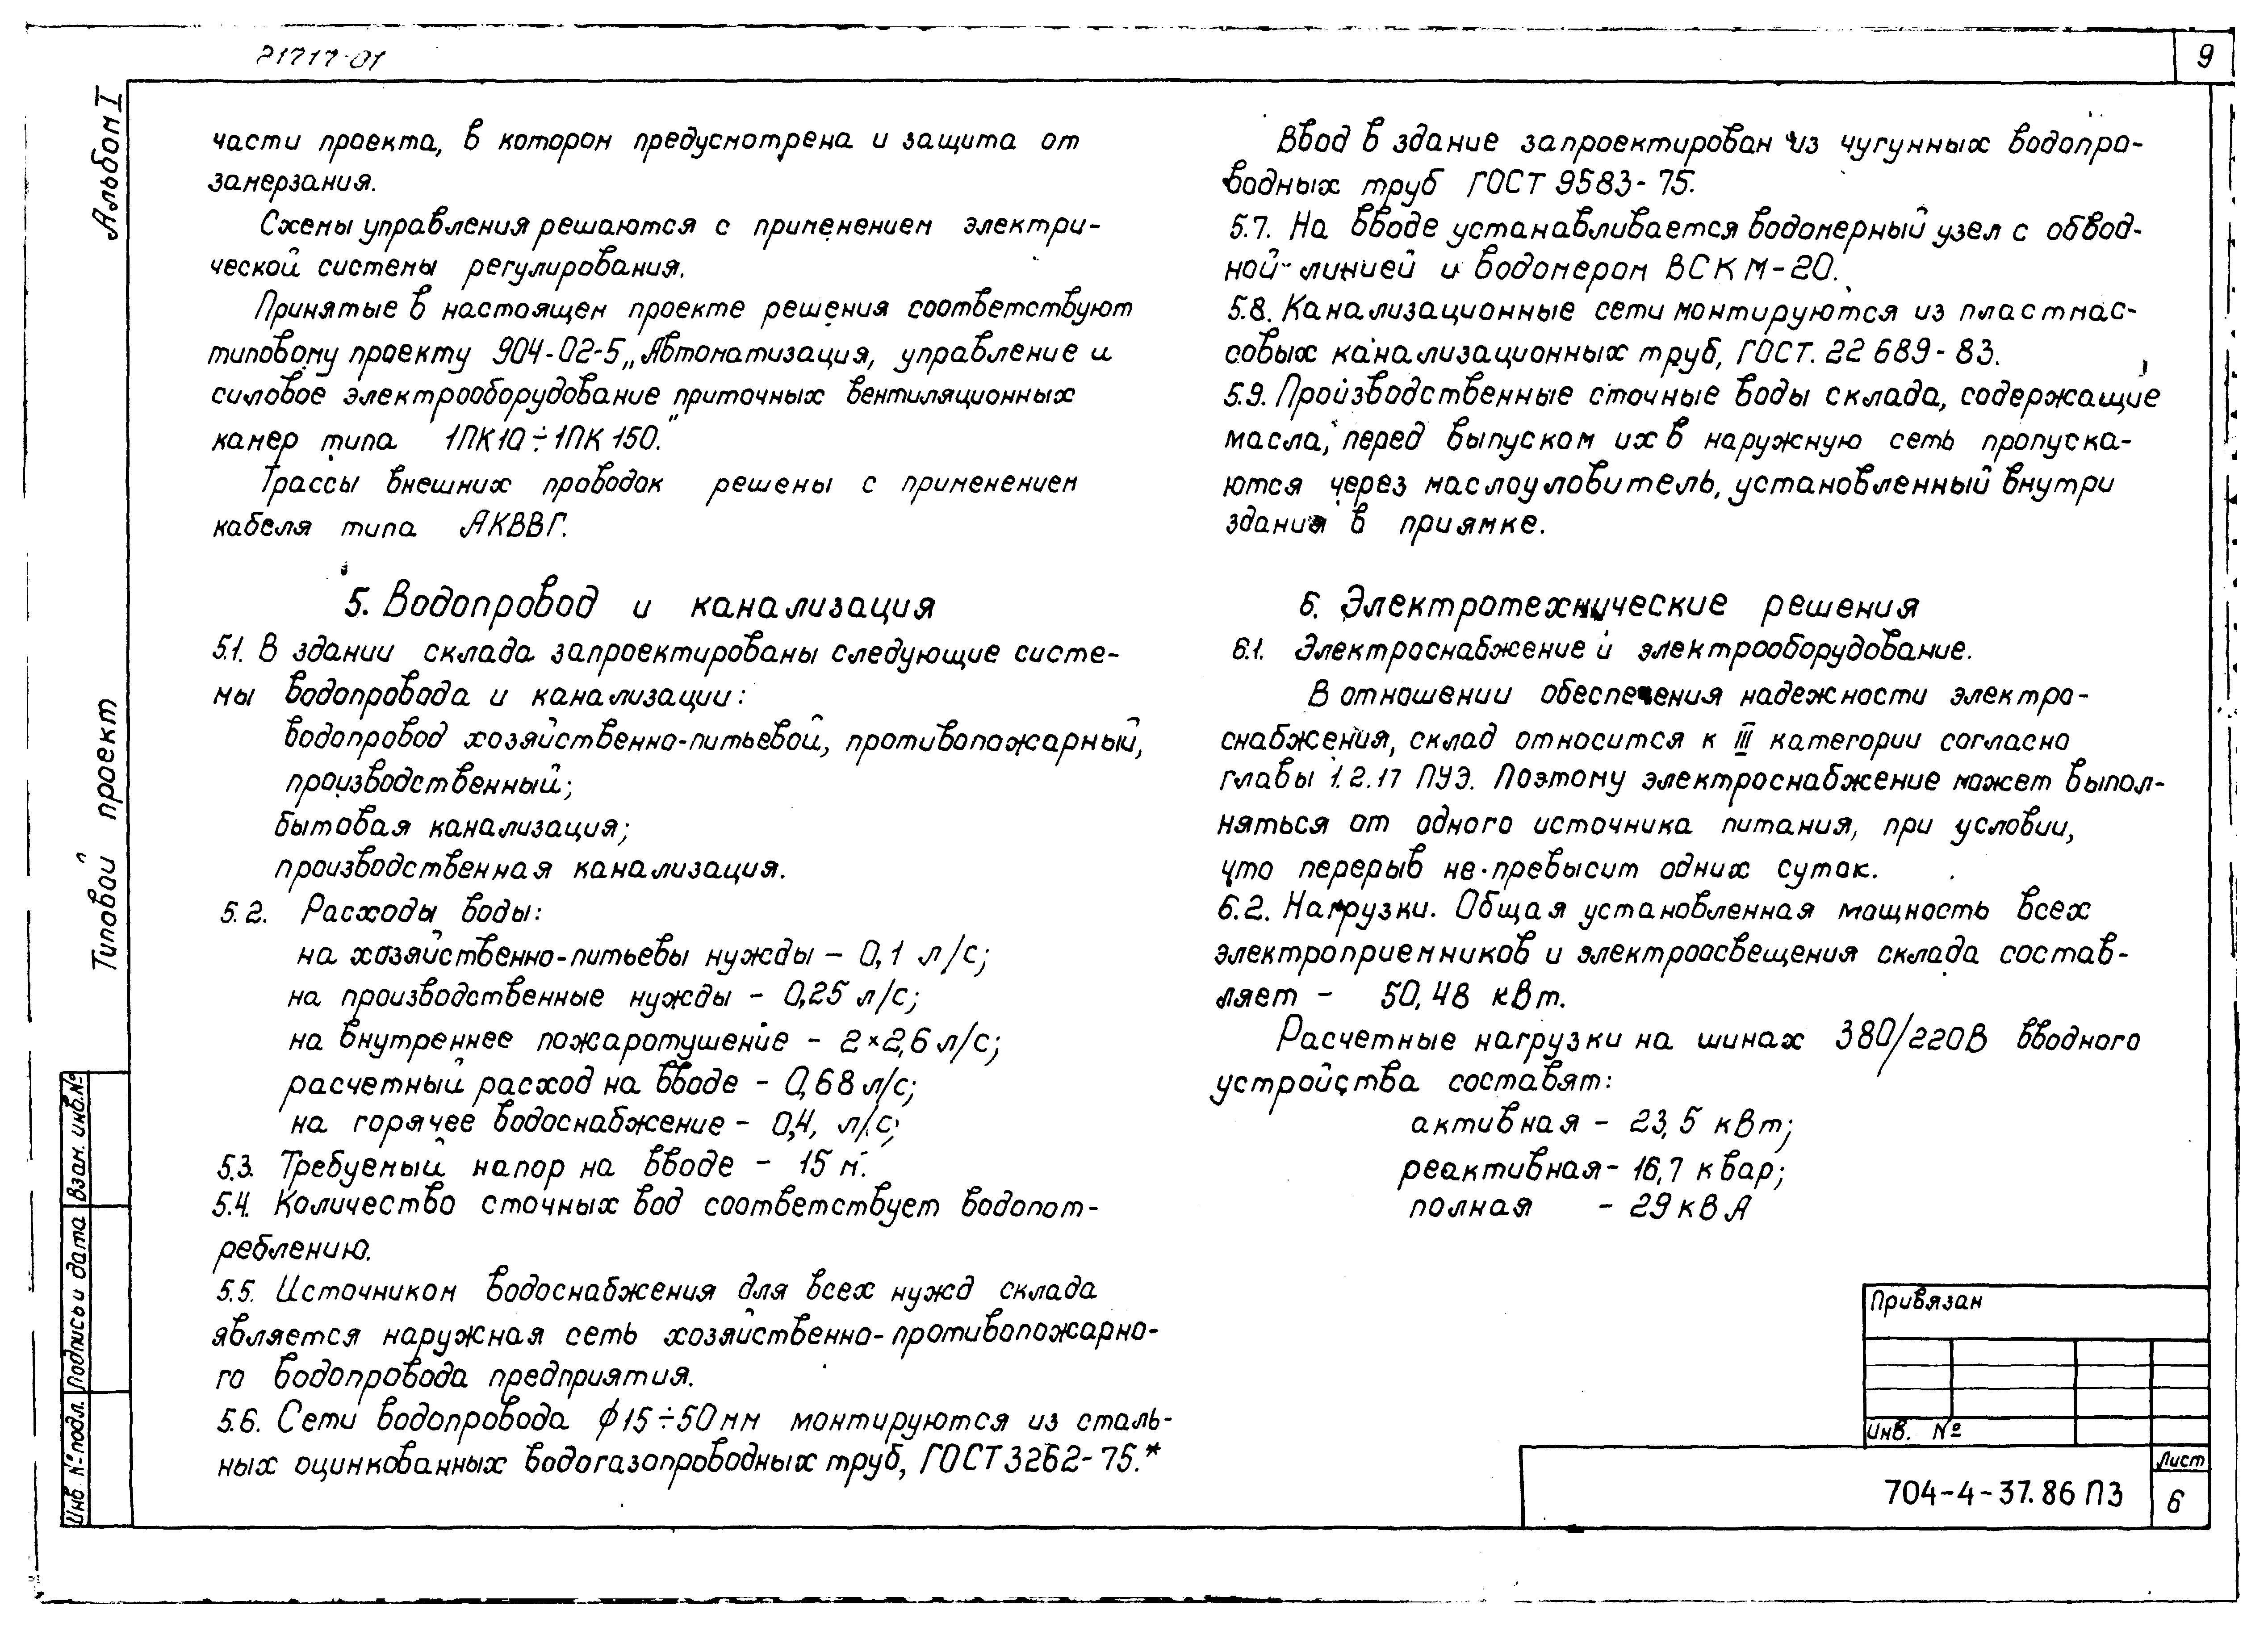 21717-01
9
Альбом I
Типовой проект
части проекта, в котором предусмотрена и защита от
замерзания.
Схемы управления решаются с применением электри-
ческой системы регулирования.
Принятые в настоящем проекте решения соответствуют
типовому проекту 904-02-5 „Автоматизация, управление и
силовое электрооборудование приточных вентиляционных
камер типа 1ПК10÷1ПК150."
Трассы внешних проводок решены с применением
кабеля типа АКВВГ.
5. Водопровод и канализация
5.1. В здании склада запроектированы следующие систе-
мы водопровода и канализации:
водопровод хозяйственно-питьевой, противопожарный,
производственный;
бытовая канализация;
производственная канализация.
5.2. Расходы воды:
на хозяйственно-питьевы нужды – 0,1 л/с;
на производственные нужды – 0,25 л/с;
на внутреннее пожаротушение – 2×2,6 л/с;
расчетный расход на вводе – 0,68 л/с;
на горячее водоснабжение – 0,4, л/с;
5.3. Требуемый напор на вводе – 15 м.
5.4. Количество сточных вод соответствует водопот-
реблению.
5.5. Источником водоснабжения для всех нужд склада
является наружная сеть хозяйственно-противопожарно-
го водопровода предприятия.
5.6. Сети водопровода ϕ15÷50мм монтируются из сталь-
ных оцинкованных водогазопроводных труб, ГОСТ 3262-75.*
Ввод в здание запроектирован из чугунных водопро-
водных труб ГОСТ 9583-75.
5.7. На вводе устанавливается водомерный узел с обвод-
ной линией и водомером ВСКМ-20.
5.8. Канализационные сети монтируются из пластмас-
совых канализационных труб, ГОСТ. 22689-83.
5.9. Производственные сточные воды склада, содержащие
масла, перед выпуском их в наружную сеть пропуска-
ются через маслоуловитель, установленный внутри
здания в приямке.
6. Электротехнические решения
6.1. Электроснабжение и электрооборудование.
В отношении обеспечения надежности электро-
снабжения, склад относится к III категории согласно
главы 1.2.17 ПУЭ. Поэтому электроснабжение может выпол-
няться от одного источника питания, при условии,
что перерыв не превысит одних суток.
6.2. Нагрузки. Общая установленная мощность всех
электроприемников и электроосвещения склада состав-
ляет – 50,48 кВт.
Расчетные нагрузки на шинах 380/220В вводного
устройства составят:
активная – 23,5 кВт;
реактивная – 16,7 квар;
полная – 29 кВА
Привязан
Инв. №
704-4-37.86 ПЗ
Лист
6
Взам. инв.№
Подпись и дата
Инв № подл.